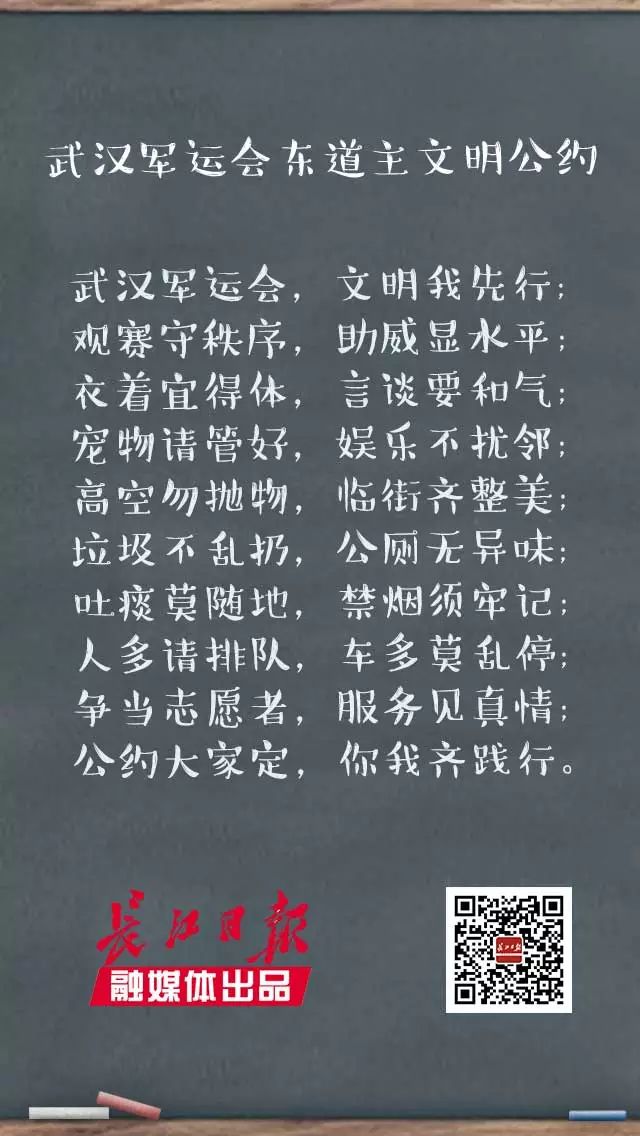 武汉军运会东道主文明公约
武汉军运会，文明我先行；
观赛守秩序，助威显水平；
衣着宜得体，言谈要和气；
宠物请管好，娱乐不扰邻；
高空勿抛物，临街齐整美；
垃圾不乱扔，公厕无异味；
吐痰莫随地，禁烟须牢记；
人多请排队，车多莫乱停；
争当志愿者，服务见真情；
公约大家定，你我齐践行。
长江日报
融媒体出品
长江日报